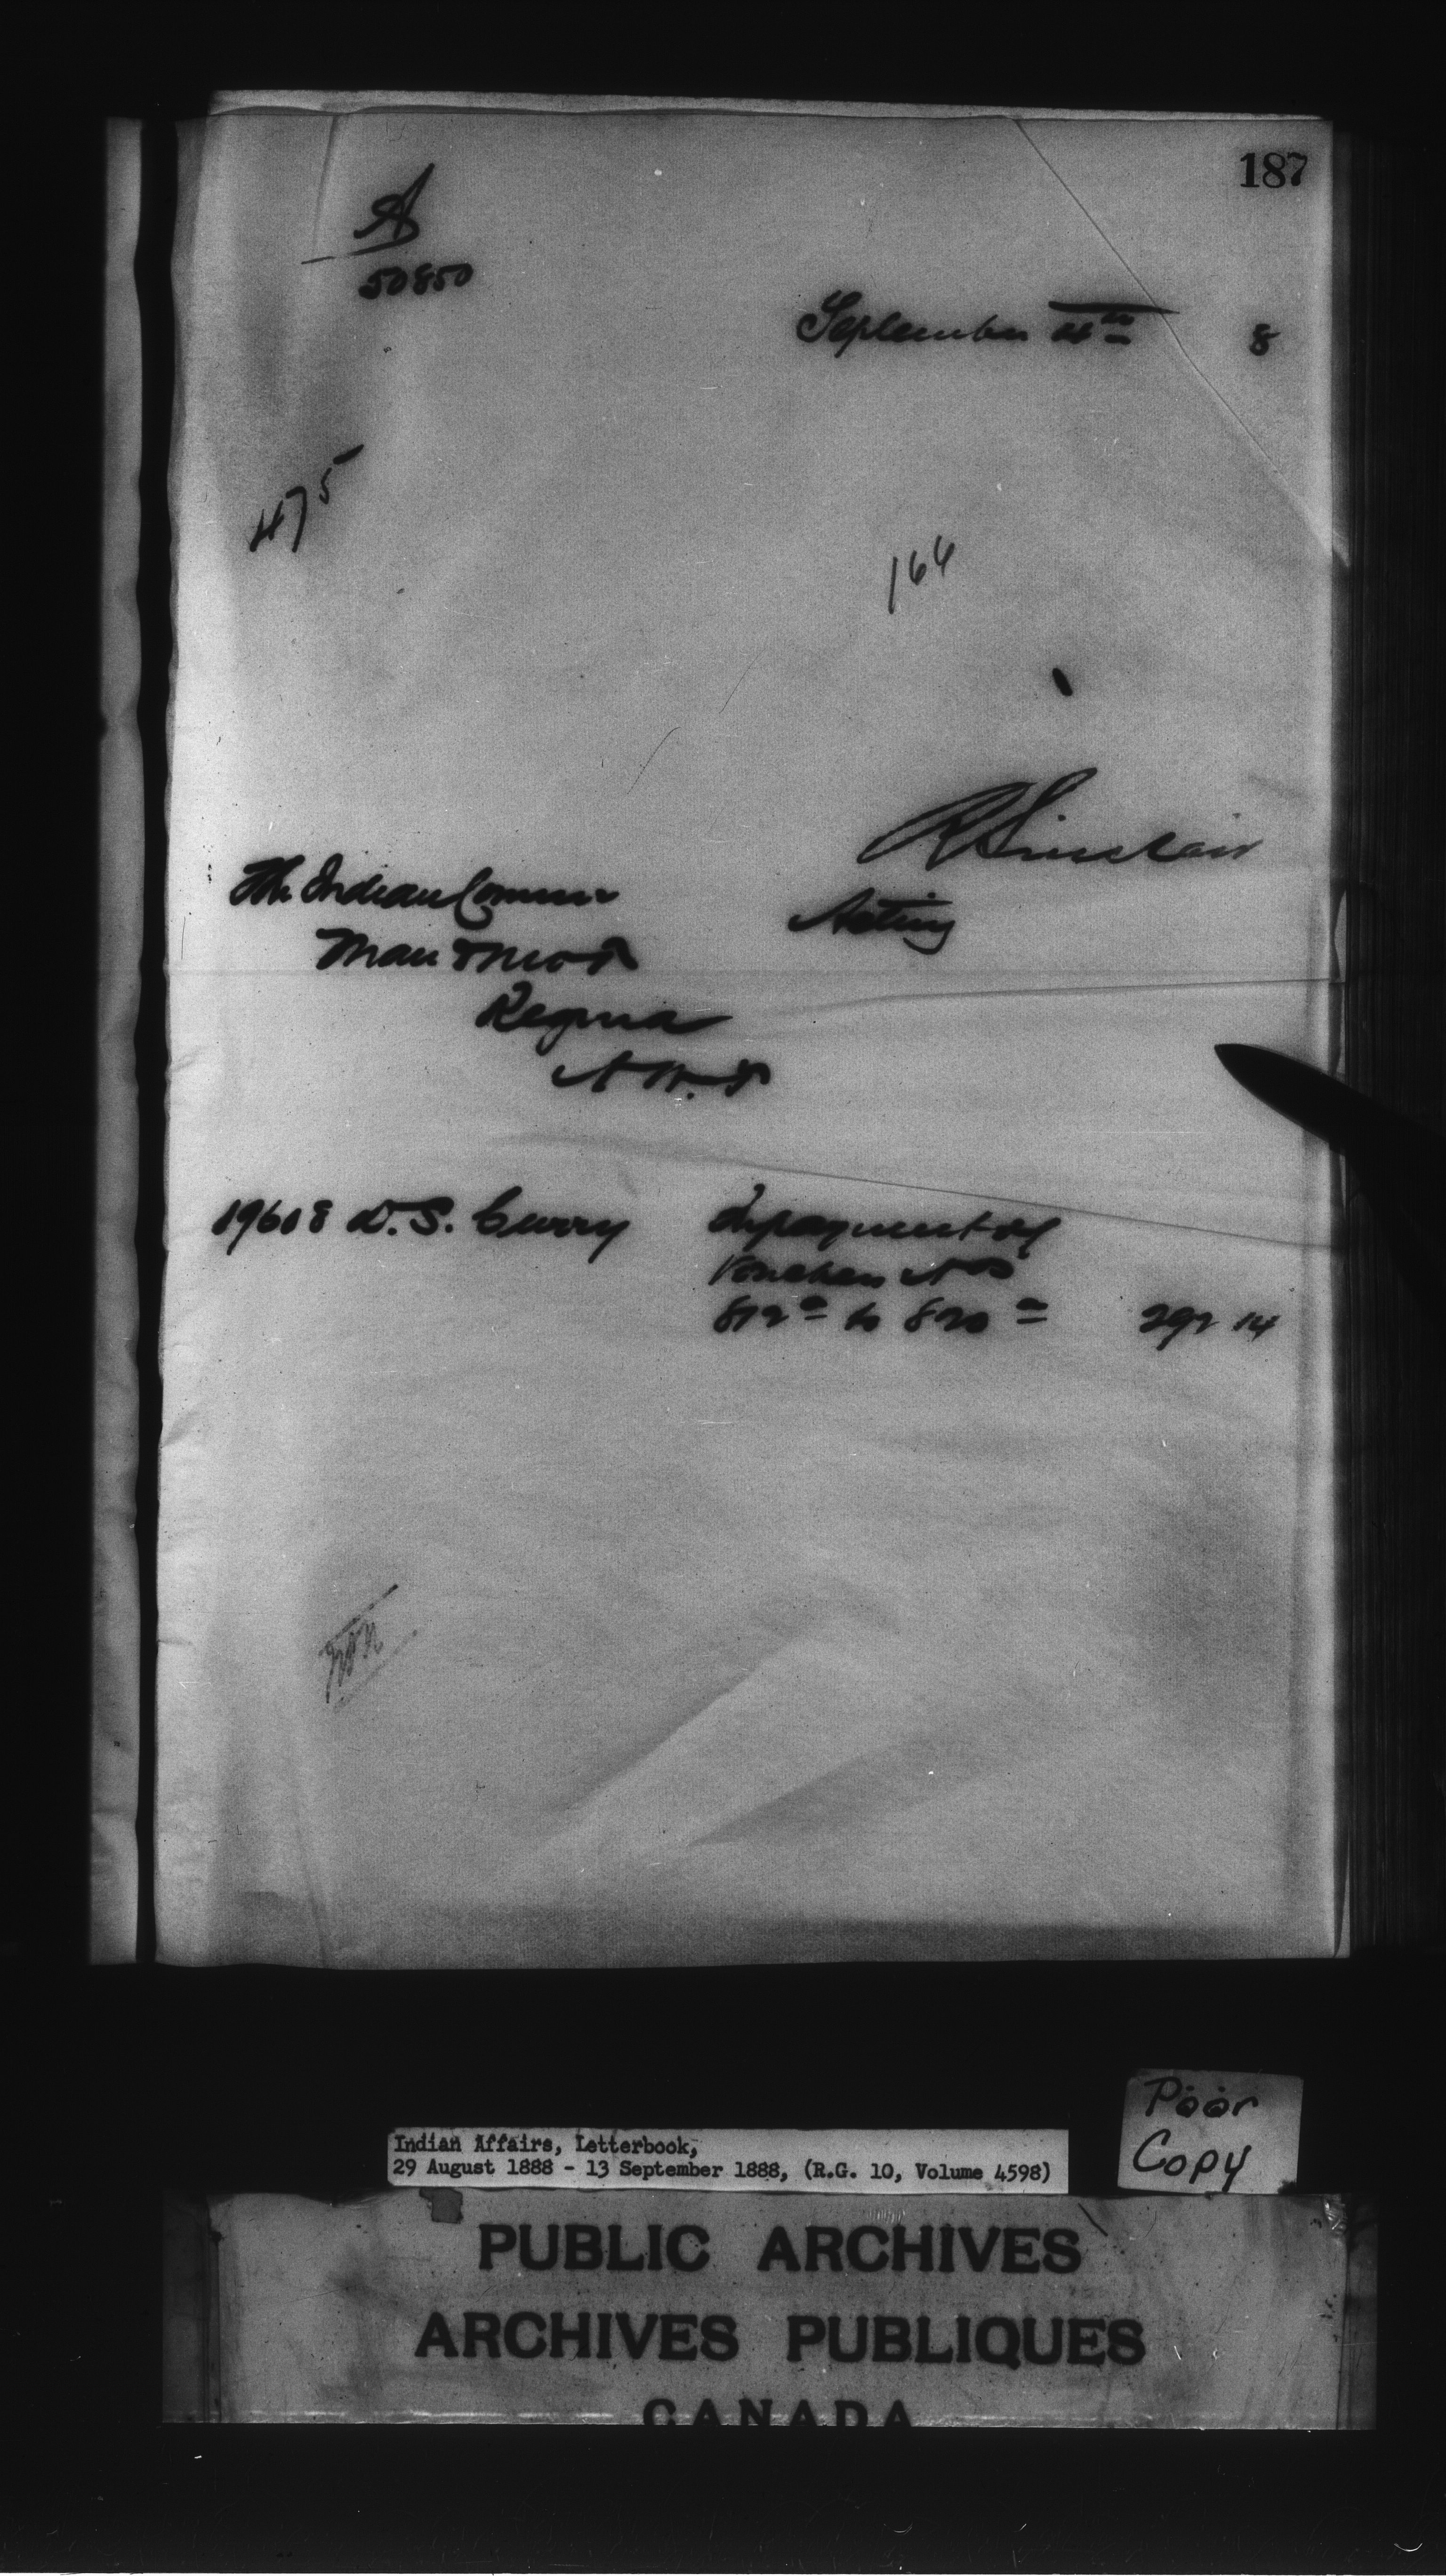 187
A
50850
September 4th 8
475
164
R Sinclair
The Indian Commr
Acting
Man & N W T
Regina
N. W. T
19608 D. S. Curry In payment of
Vouchers Nos
812a to 820a 292 14
Poor
Copy
Indian Affairs, Letterbook,
29 August 1888 - 13 September 1888, (R.G. 10, Volume 4598)
PUBLIC ARCHIVES
ARCHIVES PUBLIQUES
CANADA